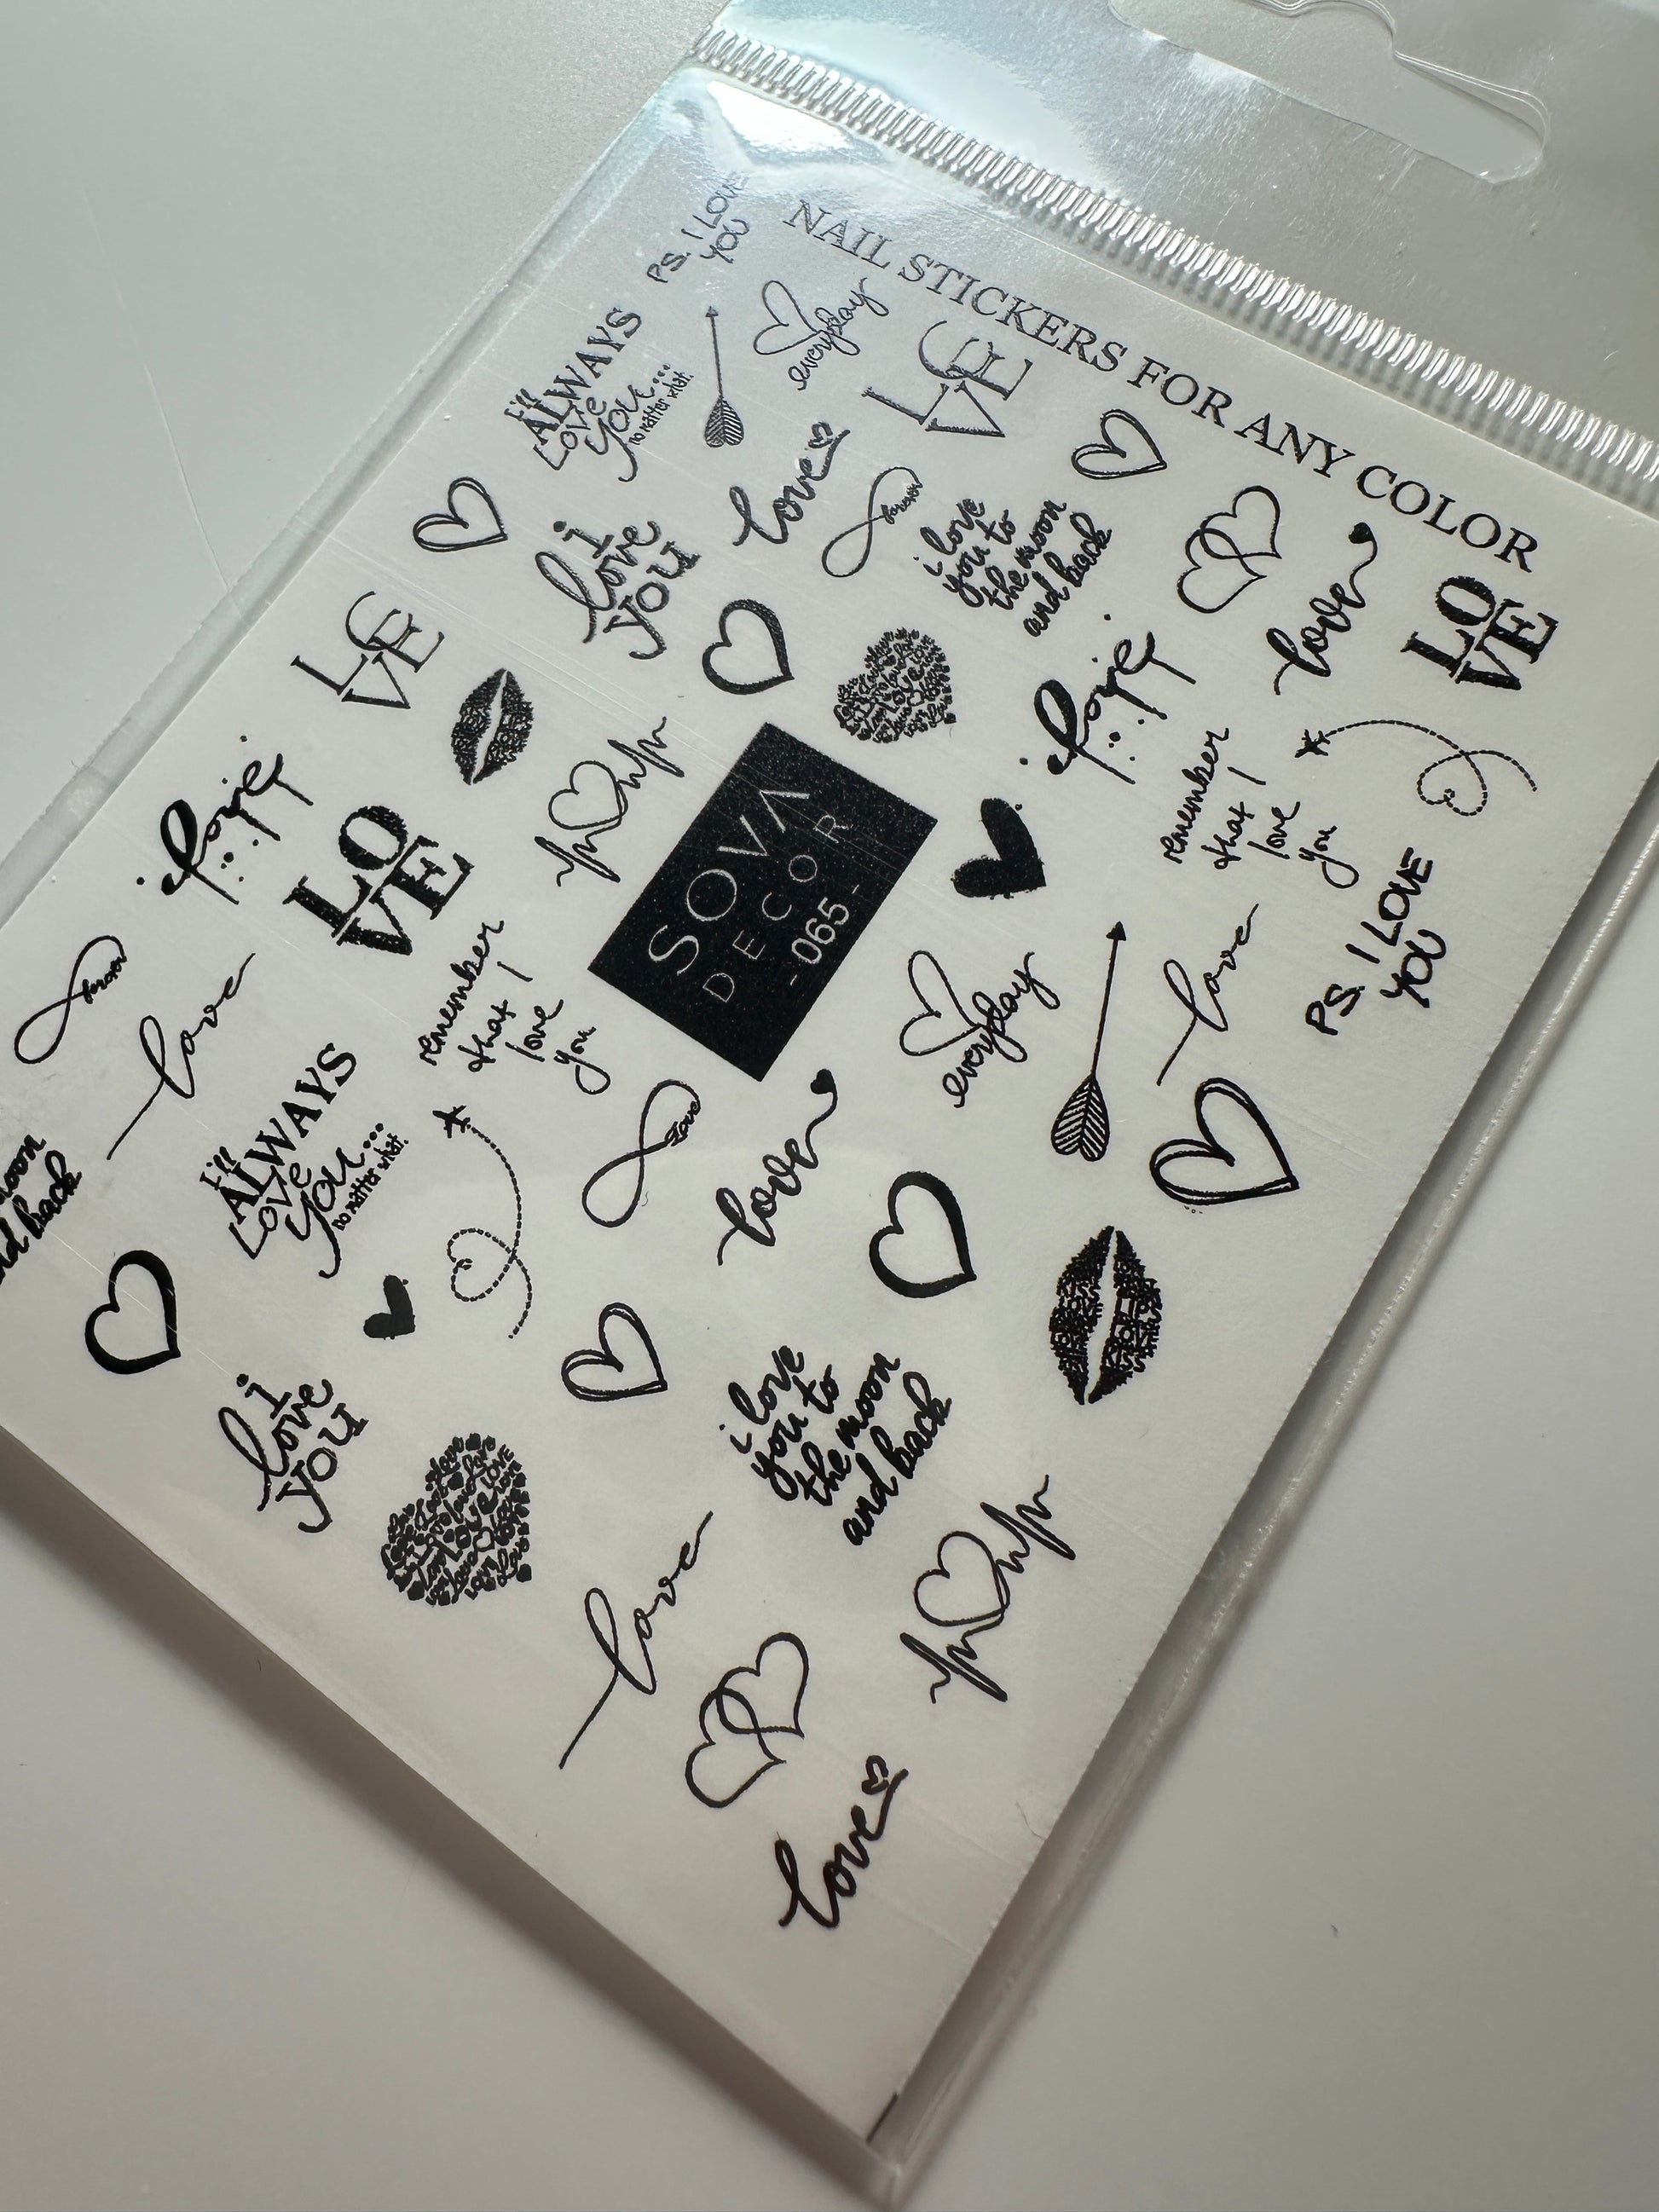 NAIL STICKERS FOR ANY COLOR
P.S. I LOVE
YOU
everyday
LOVE
I'll
ALWAYS
Love
you...
no matter what.
love
forever
i love
you to
the moon
and back
love
LO
VE
i
love
you
LOVE
love
remember
that I
love
you
P.S. I LOVE
YOU
SOVA
DECOR
-065-
LO
VE
remember
that I
love
you
everyday
love
forever
love
I'll
ALWAYS
Love
you...
no matter what.
love
love
moon
nd back
i
love
you
i love
you to
the moon
and back
love
love